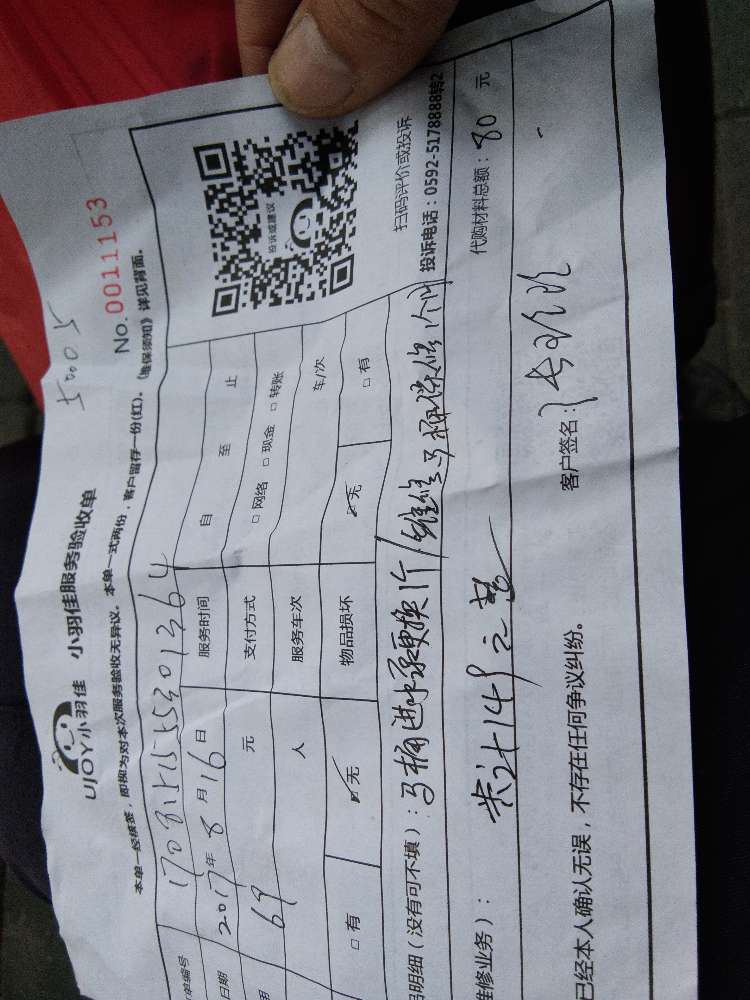 50005
UJOY小羽佳 小羽佳服务验收单
No.0011153
本单一经核签，即视为对本次服务验收无异议。本单一式两份，客户留存一份(红)。《维保须知》详见背面。
单编号
日期 2017年8月16日 服务时间 自 至 止
用 69 元 支付方式 □网络 □现金 □转账
人 服务车次 车/次
□有 ☑无 物品损坏 ☑无 □有
投诉或建议
扫码评价或投诉
投诉电话：0592-5178888转2
明细（没有可不填）：马桶进水更换1个/维修马桶 1个
代购材料总额：80 元
维修业务）： 共计149元整
已经本人确认无误，不存在任何争议纠纷。
客户签名：